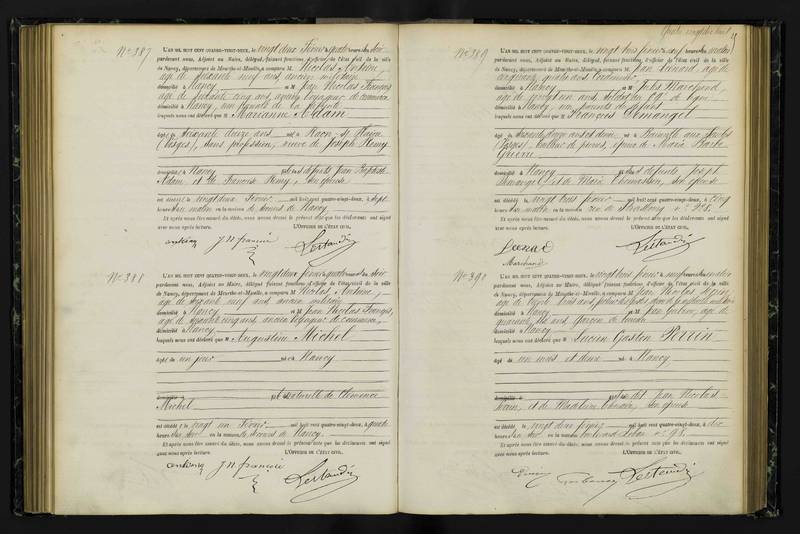 N.º 387
L'AN MIL HUIT CENT QUATRE-VINGT-DEUX, le vingt deux Février à quatre heures du soir
pardevant nous, Adjoint au Maire, délégué, faisant fonctions d'officier de l'état civil de la ville
de Nancy, département de Meurthe-et-Moselle, a comparu M. Nicolas Antoine,
âgé de soixante neuf ans, ancien militaire
domicilié à Nancy et M. Jean Nicolas François
âgé de soixante cinq ans, ancien voyageur de commerce
domicilié à Nancy,
lesquels nous ont déclaré que M Marianne Adam
âgée de soixante douze ans née à Raon-
(Vosges), sans profession, veuve de Joseph Remy
domiciliée à Nancy fille de défunts Jean Baptiste
Adam et de Françoise Remy, son épouse
vingt deux Février mil huit cent quatre-vingt-deux, à sept
heures du matin en la maison de secours de Nancy
Et après nous être assuré du décès, nous avons dressé le présent acte que les déclarants ont signé
avec nous après lecture. L'OFFICIER DE L'ÉTAT CIVIL,
J N françois
N.º 388
L'AN MIL HUIT CENT QUATRE-VINGT-DEUX, le vingt deux février à quatre heures du soir
pardevant nous, Adjoint au Maire, délégué, faisant fonctions d'officier de l'état civil de la ville
de Nancy, département de Meurthe-et-Moselle, a comparu M. Nicolas Antoine,
âgé de soixante neuf ans, ancien militaire
domicilié à Nancy et M. Jean Nicolas François,
âgé de soixante cinq ans, ancien voyageur de commerce,
domicilié à Nancy
lesquels nous ont déclaré que M Augustine Michel
âgée de un jour née à Nancy
fille naturelle de Clémence
Michel
est décédée le vingt un Février mil huit cent quatre-vingt-deux, à quatre
heures du soir en la maison de secours de Nancy.
Et après nous être assuré du décès, nous avons dressé le présent acte que les déclarants ont signé
avec nous après lecture. L'OFFICIER DE L'ÉTAT CIVIL,
J N françois
Quatre vingt dix huit
N.º 389
L'AN MIL HUIT CENT QUATRE-VINGT-DEUX, le vingt trois février à neuf heures du matin
pardevant nous, Adjoint au Maire, délégué, faisant fonctions d'officier de l'état civil de la ville
de Nancy, département de Meurthe-et-Moselle, a comparu M. Jean Léonard, âgé de
cinquante quatre ans, Cordonnier,
domicilié à Nancy et M. Jules Marchand,
âgé de vingt un ans, soldat au 69e de ligne
domicilié à Nancy,
lesquels nous ont déclaré que M François Demangel
âgé de soixante douze ans né à
(Vosges), de pierres, époux de Marie Barbe
domicilié à Nancy fils de défunts Joseph
Demangel et de Marie Thomassin, son épouse
est décédé le vingt trois février mil huit cent quatre-vingt-deux, à cinq
heures du matin en la maison rue de Strasbourg n.º 
Et après nous être assuré du décès, nous avons dressé le présent acte que les déclarants ont signé
avec nous après lecture. L'OFFICIER DE L'ÉTAT CIVIL,
Marchand
N.º 390
L'AN MIL HUIT CENT QUATRE-VINGT-DEUX, le vingt trois février à neuf heures du matin
pardevant nous, Adjoint au Maire, délégué, faisant fonctions d'officier de l'état civil de la ville
de Nancy, département de Meurthe-et-Moselle, a comparu M. Jean Nicolas
âgé de trente
domicilié à Nancy et M. Jean
quarante ans, garçon de bureau
domicilié à Nancy
lesquels nous ont déclaré que M Lucien Gaston Perrin
âgé de un mois et demi né à Nancy,
fils de dit Jean Nicolas
et de Madeleine son épouse
est décédé le vingt deux février mil huit cent quatre-vingt-deux, à dix
heures du soir en la maison boulevard Lobau n.º 
Et après nous être assuré du décès, nous avons dressé le présent acte que les déclarants ont signé
avec nous après lecture. L'OFFICIER DE L'ÉTAT CIVIL,